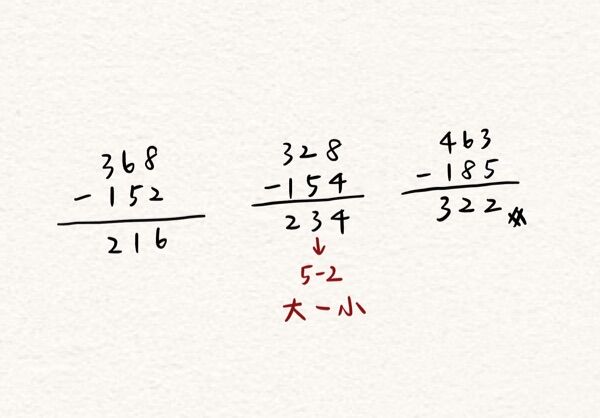 368
-152
216
328
-154
234
↓
5-2
大-小
463
-185
322